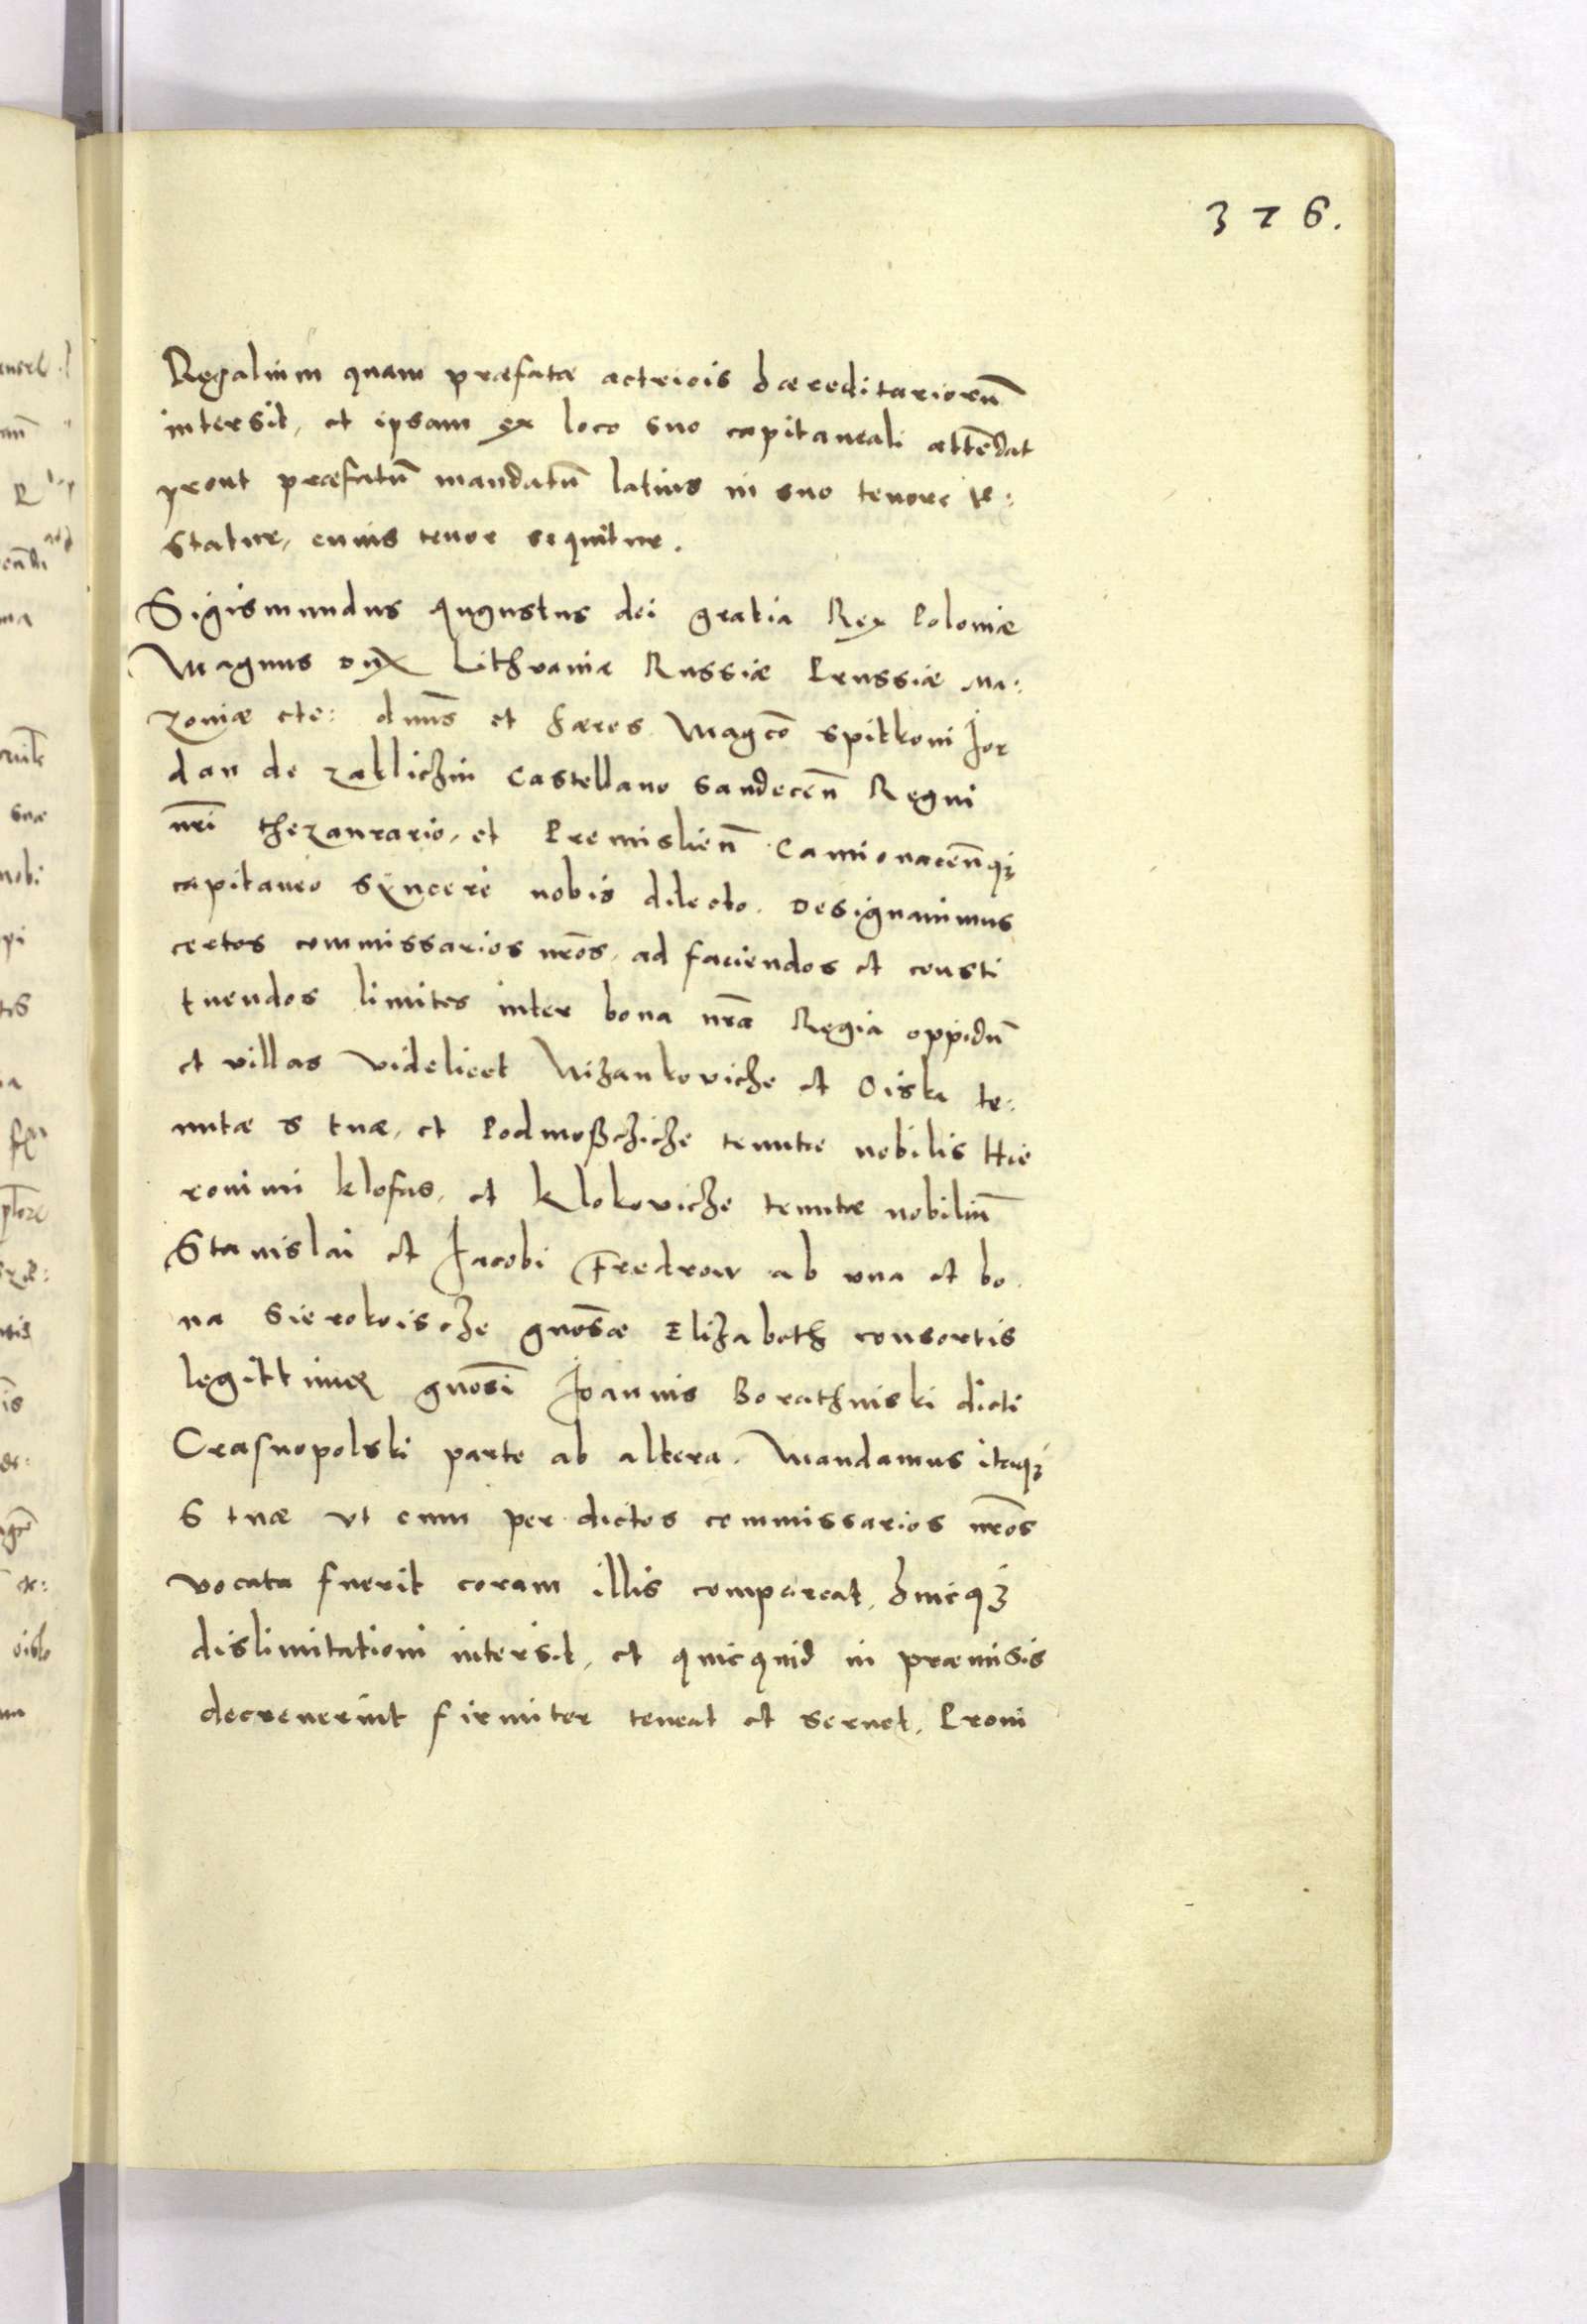 376.
Regalium quam præfatæ actricis hæreditariorũ
intersit, et ipsam ex loco suo capitaneali attẽdat
prout præfatũ mandatũ latius in suo tenore te:
statur, cuius tenor sequitur.
Sigismundus Augustus dei gratia Rex Poloniæ
Magnus Dux Lithvaniæ Russiæ Prussiæ Ma:
zoniæ etc: dnũs et hæres Magcõ Spitkoni Jor
dan de Zaklichin Castellano Sandecen̄ Regni
nr̃i thezaurario, et Premislien̄ Camionacen̄q3
capitaneo syncere nobis dilecto. Designauimus
certos commissarios nr̃os, ad faciendos et consti
tuendos limites inter bona nr̃a Regia oppidũ
et villas videlicet Nizankoviche et Ciska te:
nutæ S tuæ, et Podmoßchiche tenutæ nobilis Hie
ronimi Klofas, et Klokoviche tenutæ nobiliũ
Stanislai et Jacobi Fredrow ab una et bo.
na Sierakoische gnõsæ Elizabeth consortis
legittimæ gnõsi Joannis Borathinski dicti
Crasnopolski parte ab altera. Mandamus itaq3
S tuæ ut cum per dictos commissarios nr̃os
vocata fuerit coram illis compareat, huicq3
dislimitationi intersit, et quicquid in præmisis
decreuerint firmiter teneat et seruet. Proui